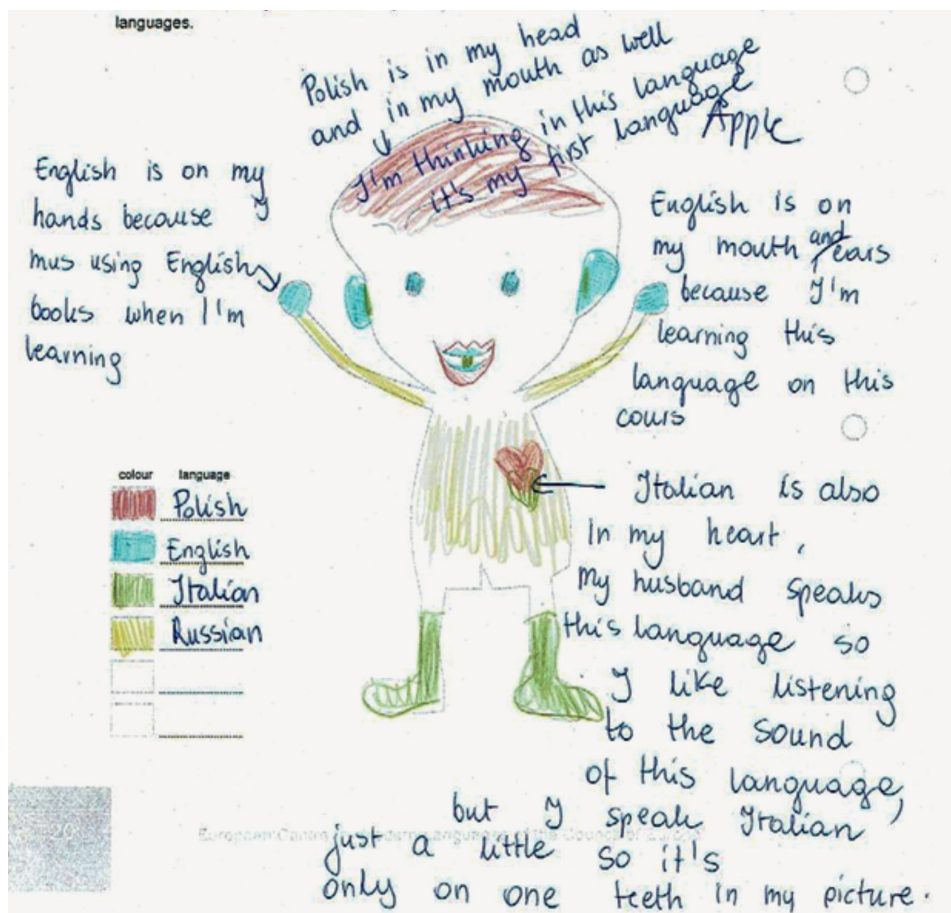 languages.
Polish is in my head
and in my mouth as well
I'm thinking in this language
it's my first language
Apple
English is on my
hands because I
mus using English
books when I'm
learning
English is on
my mouth and ears
because I'm
learning this
language on this
cours
colour language
Polish
English
Italian
Russian
Italian is also
In my heart,
my husband speaks
this language so
I like listening
to the sound
of this language,
but I speak Italian
just a little so it's
only on one teeth in my picture.
European Centre for Modern Languages of the Council of Europe